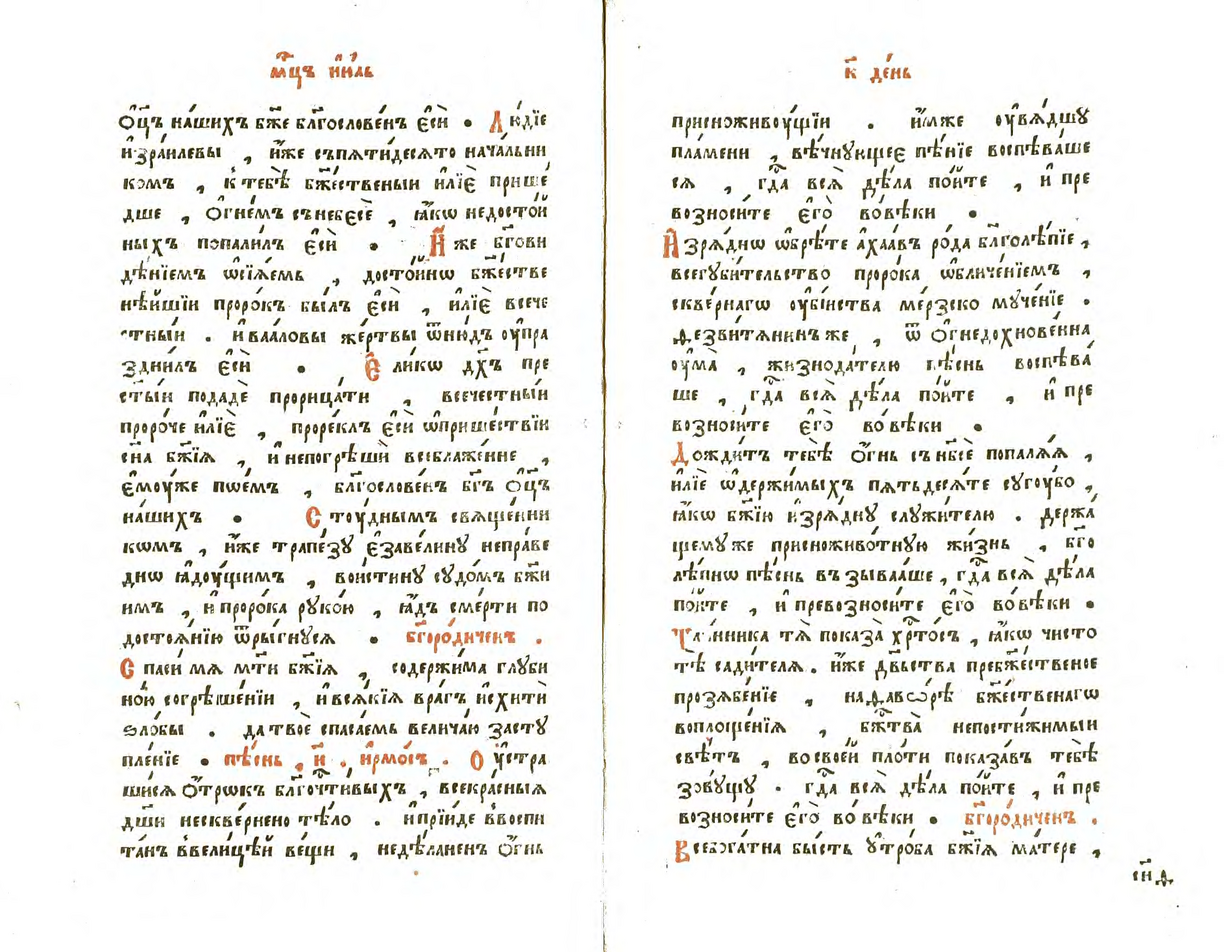 мц҃ъ ию҃ль
Оц҃ъ на́шихъ бж҃е блг҃ослове́нъ є҆сѝ • Людїе
и҆зра́илевы , и҆́же съпѧтидесѧ́то нача́льни
комъ , к тебѣ̀ бж҃ественыи и҆лїѐ прише́
дше , ѻ҆гне́мъ съ небесѐ , ꙗ҆́кѡ недосто́й
ныхъ попали́лъ є҆сѝ • И҆́ же бг҃ови
дѣ́нїемъ ѡ҆сїѧ́емь , досто́йнѡ бж҃естве
нѣ́йшїи проро́къ бы́лъ є҆сѝ , и҆лїѐ всече
стныи . и҆ ваа́ловы же́ртвы ѿню́дъ оу҆пра
здни́лъ є҆сѝ • Є҆ ли́кѡ дх҃ъ пре
ст҃ы́и подадѐ прорица́ти , всече́стныи
проро́че и҆лїѐ , проре́клъ є҆сѝ ѡ҆прише́ствїи
сн҃а бж҃їѧ , и҆ непогрѣшѝ всеблаже́нне ,
є҆моу́же пое́мъ , блг҃ослове́нъ бг҃ъ ѻ҆ц҃ъ
на́шихъ • С тоу́днымъ свѧще́нни
комъ , и҆́же трапе́зꙋ є҆заве́линꙋ непра́ве
днѡ ꙗ҆доу́щимъ , вои́стинꙋ сꙋдо́мъ бж҃и
имъ , и҆ проро́ка рꙋко́ю , ꙗ҆́дъ сме́рти по
достоѧ́нїю ѿры́гнꙋсѧ • бг҃оро́диченъ .
С паси́ мѧ мт҃и бж҃їѧ , содержи́ма глꙋби
но́ю согрѣше́нїи , и҆ всѧ́кїѧ вра́гъ и҆схитѝ
ѕло́бы . да твоѐ спаса́емь велича́ю застꙋ
пле́нїе • пѣ́снь , и҃ . і҆рмо́съ . О у҆стра
ши́сѧ ѻ҆́трокъ блг҃очти́выхъ , всекра́сныѧ
дш҃и нескве́рнено тѣ́ло . и҆ прїи́де ввоспи
та́нъ ввели́цѣй ве́щи , недѣ́ланенъ ѻ҆́гнь
к҃ де́нь
присноживоу́щїи . и҆́мже оу҆вѧ́дшꙋ
пла́мени , вѣ́чнꙋющеє пѣ́нїе воспѣва́ше
сѧ , гд҃а всѧ̀ дѣ́ла по́йте , и҆ пре
возноси́те є҆го̀ во вѣ́ки •
И҆ зрѧ́днѡ ѡ҆брѣ́те а҆хаа́въ ро́да блг҃олѣ́пїе ,
всегꙋби́тельство проро́ка ѡ҆бличе́нїемъ ,
скве́рнагѡ оу҆бі́иства ме́рзско мꙋче́нїе .
Ѳезвитѧ́нинъ же , ѿ ѻ҆гнедохнове́нна
оу҆ма̀ , жизнода́телю пѣ́снь воспѣва́
ше , гд҃а всѧ̀ дѣ́ла по́йте , и҆ пре
возноси́те є҆го̀ во вѣ́ки •
Дожди́тъ тебѣ̀ ѻ҆́гнь съ нб҃сѐ попалѧ́ѧ ,
и҆лїе ѡ҆держи́мыхъ пѧтьдесѧ́те сꙋгоу́бо ,
ꙗ҆́кѡ бж҃їю и҆зрѧ́днꙋ слꙋжи́телю . держа́
щемꙋ же присноживо́тную жи́знь , бг҃о
лѣ́пнѡ пѣ́снь въ зыва́аше , гд҃а всѧ̀ дѣ́ла
по́йте , и҆ превозноси́те є҆го̀ во вѣ́ки •
Та́инника тѧ̀ показа̀ хрⷭ҇то́съ , ꙗ҆́кѡ чисто
тѣ̀ сади́телѧ . и҆́же дв҃ьства преб҃жественое
прозѧбе́нїе , на ѳавѡ́рѣ бж҃ественагѡ
воплоще́нїѧ , бж҃тва̀ непостижи́мыи
свѣ́тъ , во свое́й пло́ти показа́въ тебѣ̀
зовꙋ́щꙋ . гд҃а всѧ̀ дѣ́ла по́йте , и҆ пре
возноси́те є҆го̀ во вѣ́ки • бг҃оро́диченъ .
Всебога́тна бы́сть ꙋ҆тро́ба бж҃їѧ ма́тере ,
сн҃ѳ